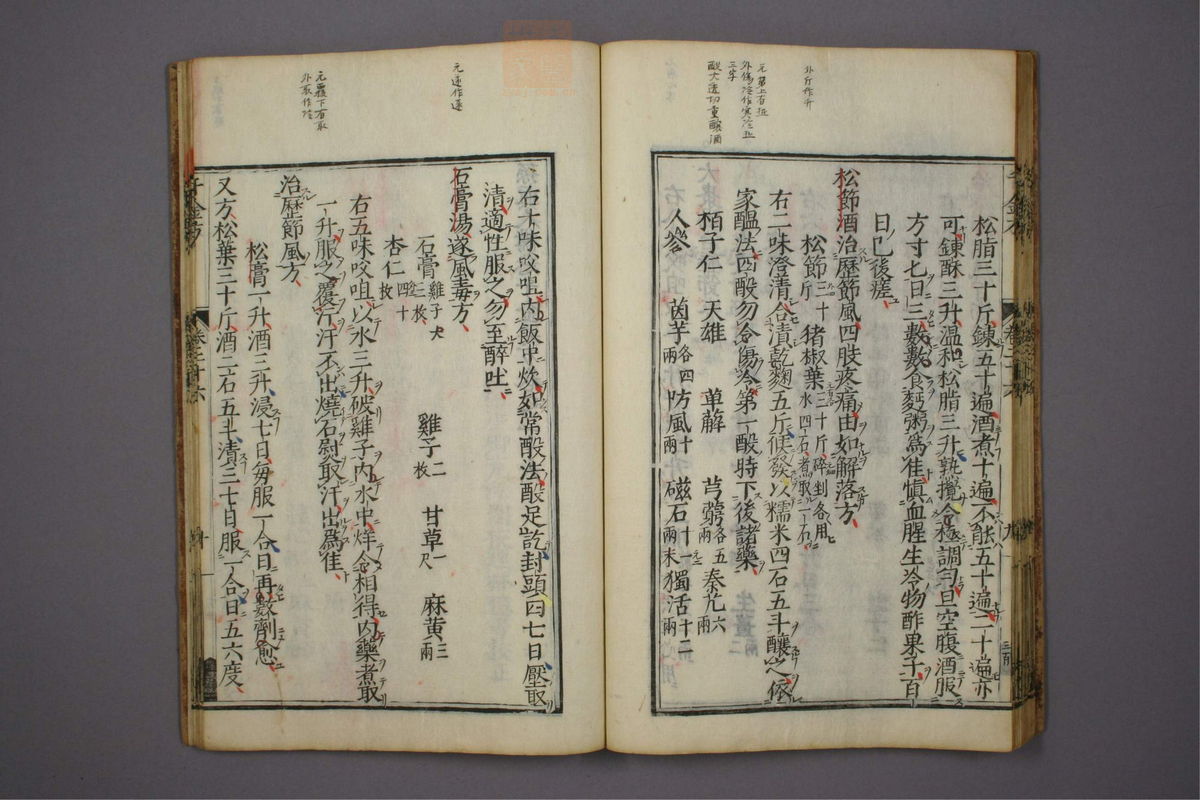 外斤作升
元第上有還
三字
酘大適切重釀酒
松脂三十斤鍊五十遍酒煮十遍不能五十遍二十遍亦
可鍊酥三升温和松脂三升熟攪令極調勻旦空腹酒服
方寸七日三數數食麫粥爲佳慎血腥生冷物酢果子百
日已後瘥
松節酒治歷節風四肢疼痛由如解落方
松節三十斤 猪椒葉三十斤碎剉各用水四石煮取一石
右二味澄清合漬乾麴五斤候發以糯米四石五斗釀之依
家醖法四酘勿令傷冷第一酘時下後諸藥
栢子仁 天雄 萆薢 芎藭各五兩 秦艽六兩
人參 茵芋各四兩 防風十兩 磁石十二兩末 獨活十二兩
元遂作逐
元覆下有取
外取作冷
右十味㕮咀内飯中炊如常酘法酘足訖封頭四七日壓取
清適性服之勿至醉吐
石膏湯遂風毒方
石膏雞子大三枚 雞子二枚 甘草一尺 麻黄三兩
杏仁四十枚
右五味㕮咀以水三升破雞子内水中烊令相得内藥煮取
一升服之覆汗汗不出燒石熨取汗出爲佳
治歷節風方
松膏一升酒三升浸七日每服一合日再數劑愈
又方松葉三十斤酒二石五斗漬三七日服一合日五六度
千金方
卷二十六
十